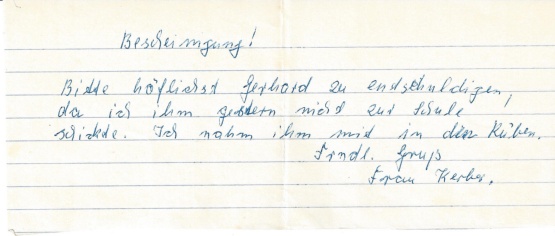 Bescheinigung!
Bitte höflichst Gerhard zu endschuldigen,
da ich ihm gestern nicht zur Schule
schickte. Ich nahm ihm mit in den Rüben.
Frndl. Gruß
Frau Kerber.